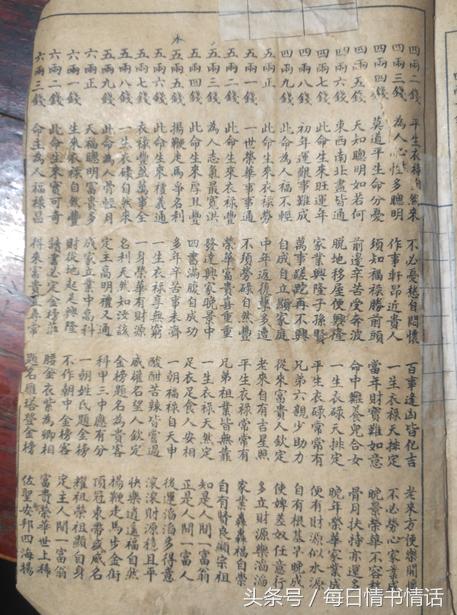 四兩二錢 平生衣祿自然來 不必憂愁自開懷 百事逢凶皆化吉 老來方便樂開懷
四兩三錢 為人心性多聰明 作事軒昂近貴人 一生衣祿天排定 不必勞心家業成
四兩四錢 莫道平生命分憂 須知福祿勝前頭 當年財寶難如意 晚景榮華不容
四兩五錢 天知聰明如若何 前邊辛苦受奔波 命中難養兒女 骨肉扶持亦運多
四兩六錢 東西南北盡皆通 脫地移屋便興隆 一生衣碌天排定 晚年榮華家業成
四兩七錢 此命生來旺運年 家業興隆子孫賢 平生衣碌常常有 便有財源似水源
四兩八錢 初年運觀事難成 萬事蹉跎再不興 兄弟六親少助力 自有根基早晚成
四兩九錢 此命為人福不輕 自成自立顯家庭 從來富貴人欽定 使婢差奴任意行
五兩正 此命生來衣祿勞 中年返復事多遭 老來自有吉星照 多立財源樂滔滔
五兩一錢 一世榮華事事通 不須勞碌自亨通 平生衣祿常常有 家業森森福自崇
五兩二錢 此命生來衣祿豐 榮華富貴喜重重 兄弟祖業皆無靠 自有賢良顯宗祖
五兩三錢 為人志氣最寬洪 發達興家晚景中 一生衣祿天然定 知是人間一富翁
五兩四錢 此命生來厚且豐 四書滿腹自成功 足衣足食人安相 正是人間一富人
水
五兩五錢 揚鞭走馬爭名利 多年辛苦事未濟 一朝福祿自天申 後運滔滔多得意
五兩六錢 此命生來禮義通 一生衣祿享無窮 酸酣苦辣皆嘗過 滾滾財源穩且平
五兩七錢 衣祿豐然萬事全 一身榮華有財源 威權名望人欽定 快樂逍遙福自然
五兩八錢 一生衣碌自然來 名利天然如汝該 金榜題名為貴客 揚鞭走馬步金街
五兩九錢 此命為人骨輕 定主高明禮又通 科甲三中應有分 頂冠束帶或成名
六兩正 天福聰明富貴多 成家立業中高科 一朝姓氏題金榜 耀祖榮祖顯自身
六兩一錢 生來衣祿自然豐 財從地起足興隆 不作朝中金榜客 定主人間一富翁
六兩二錢 此命生來實可奇 讀書必定金榜 腰金衣紫為卿相 富貴榮華世上稀
六兩三錢 命主為人福祿昌 得來富貴非尋常 題名雁塔登金榜 佐聖安邦四海揚
头条号 / 每日情书情话